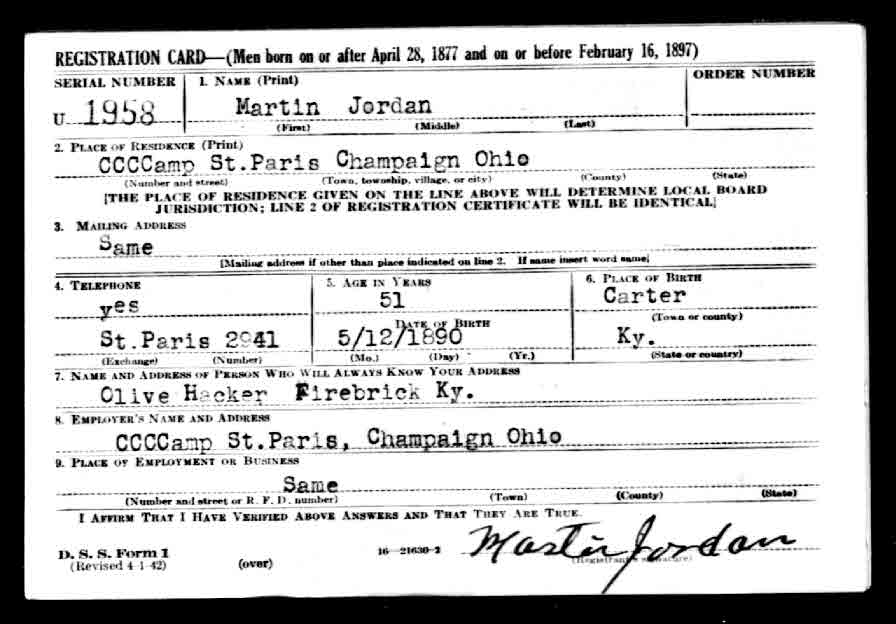 REGISTRATION CARD—(Men born on or after April 28, 1877 and on or before February 16, 1897)
SERIAL NUMBER 1. NAME (Print) ORDER NUMBER
U 1958 Martin Jordan
(First) (Middle) (Last)
2. PLACE OF RESIDENCE (Print)
CCCCamp St.Paris Champaign Ohio
(Number and street) (Town, township, village, or city) (County) (State)
[THE PLACE OF RESIDENCE GIVEN ON THE LINE ABOVE WILL DETERMINE LOCAL BOARD
JURISDICTION; LINE 2 OF REGISTRATION CERTIFICATE WILL BE IDENTICAL]
3. MAILING ADDRESS
Same
[Mailing address if other than place indicated on line 2. If same insert word same]
4. TELEPHONE 5. AGE IN YEARS 6. PLACE OF BIRTH
yes 51 Carter
DATE OF BIRTH (Town or county)
St.Paris 2941 5/12/1890 Ky.
(Exchange) (Number) (Mo.) (Day) (Yr.) (State or country)
7. NAME AND ADDRESS OF PERSON WHO WILL ALWAYS KNOW YOUR ADDRESS
Olive Hacker Firebrick Ky.
8. EMPLOYER'S NAME AND ADDRESS
CCCCamp St.Paris, Champaign Ohio
9. PLACE OF EMPLOYMENT OR BUSINESS
Same
(Number and street or R. F. D. number) (Town) (County) (State)
I AFFIRM THAT I HAVE VERIFIED ABOVE ANSWERS AND THAT THEY ARE TRUE.
D. S. S. Form 1 16—21630-2 Martin Jordan
(Revised 4-1-42) (over) (Registrant's signature)